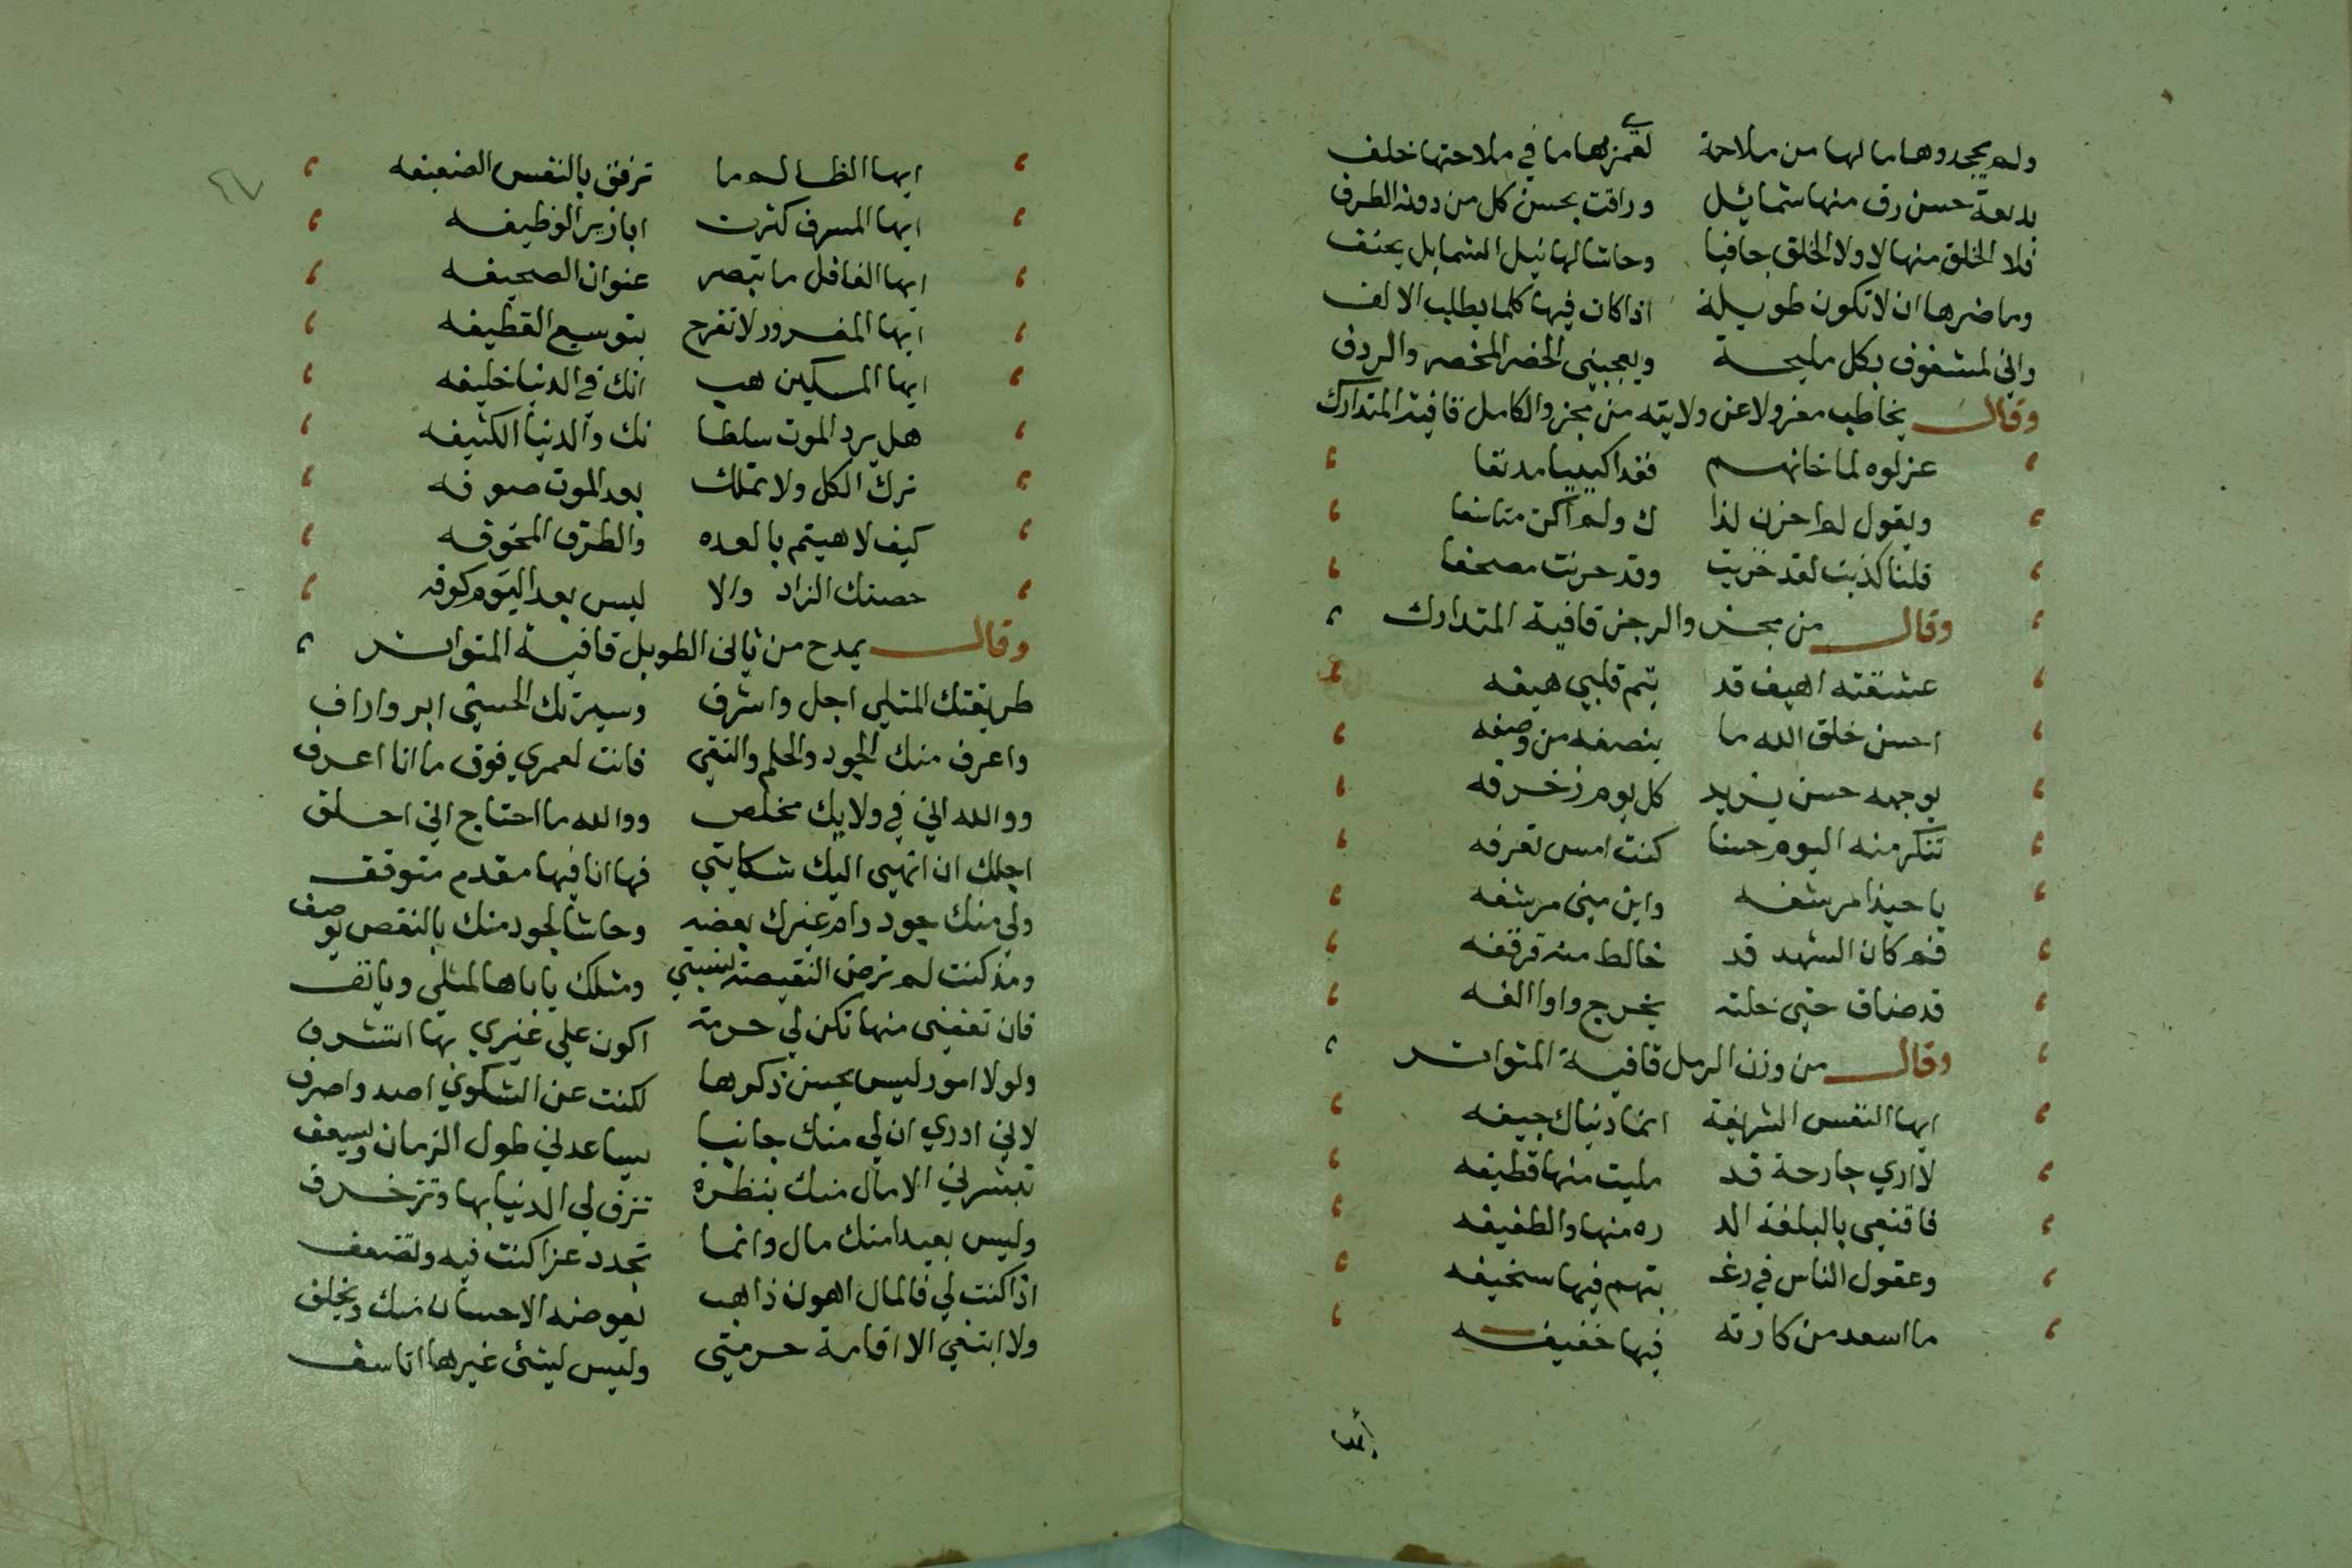 ولم يجحدوها ما لها من ملاحة لعمرها ما في ملاحتها خلف
بديعة حسن رق منها شمائل وراقت بحسن كل من دونه الطرف
فلا الخلق منها لا ولا الخلق جافيا وحاشا لهاتيك الشمايل يعنف
وما ضرها ان لا تكون طويلة اذا كان فيها كلما يطلب الالف
واني لمشغوف بكل مليحة ويعجبني الخصر المخصر والردف
وقال يخاطب معزولا عن ولايته من مجزو الكامل قافية المتدارك
عزلوه لما خانهم فغدا كييبا مدنفا
ويقول لم احزن لذا ك ولم اكن متاسفا
قلنا كذبت لقد خزيت وقد حزنت مصحفا
وقال من مجزو الرجز قافية المتدارك
عشقته اهيف قد تيم قلبي هيفه
احسن خلق الله ما ينصفه من وصفه
بوجهه حسن يزيد كل يوم زخرفه
تنكر منه اليوم حسنا كنت امس تعرفه
يا حبذا مرشفه واين مني مرشفه
فم كان الشهد قد خالط منه قرقفه
قد ضاق حتى خلته يخرج واوا الفه
وقال من وزن الرمل قافية المتواتر
ايها النفس الشريفة انما دنياك جيفه
لا اري جارحة قد مليت منها قطيفه
فاقنعي بالبلغة الد ره منها والطفيفه
وعقول الناس في رغـ بتهم فيها سخيفه
ما اسعد من كارته فيها خفيفه
أيها
٤٧
ايها الظالم ما ترفق بالنفس الضعيفه
ايها المسرف كثرت ابازير الوظيفه
ايها الغافل ما تبصر عنوان الصحيفه
ايها المغرور لا تفرح بتوسيع القطيفه
ايها المسكين هب انك في الدنيا خليفه
هل يرد الموت سلطا نك والدنيا الكثيفه
ترك الكل ولا تملك بعد الموت صوفه
كيف لا هيتم بالعده والطرق المخوفه
حصنك الزاد والا ليس بعد اليوم كوفه
وقال يمدح من ثاني الطويل قافية المتواتر
طريقتك المثلي اجل واشرف وسيرتك الحسني ابر واراف
واعرف منك الجود والحلم والتقي فانت لعمري فوق ما انا اعرف
ووالله اني في ولايك مخلص ووالله ما احتاج اني احلف
اجلك ان انهي اليك شكايتي فها انا فيها مقدم متوقف
ولي منك جود رام غيرك بعضه وحاشا لجود منك بالنقص يوصف
ومذ كنت لم ترض النقيصة شيمتي ومثلك ياباها لمثلي ويانف
فان تعفني منها تكن لي حرمة اكون علي غيري بها اتشرف
ولولا امور ليس يحسن ذكرها لكنت عن الشكوي اصد واصرف
لاني ادري ان لي منك جانبا سيساعدني طول الزمان ويسعف
تبشرني الامال منك بنظرة تزف لي الدنيا بها وتزخرف
وليس بعيدا منك مال وانما تجدد عزا كنت فيه وتضعف
اذا كنت لي فالمال اهون ذاهب يعوضه الاحسان منك ويخلف
ولا ابتغي الا اقامة حرمتي وليس لشئ غيرها اتاسف